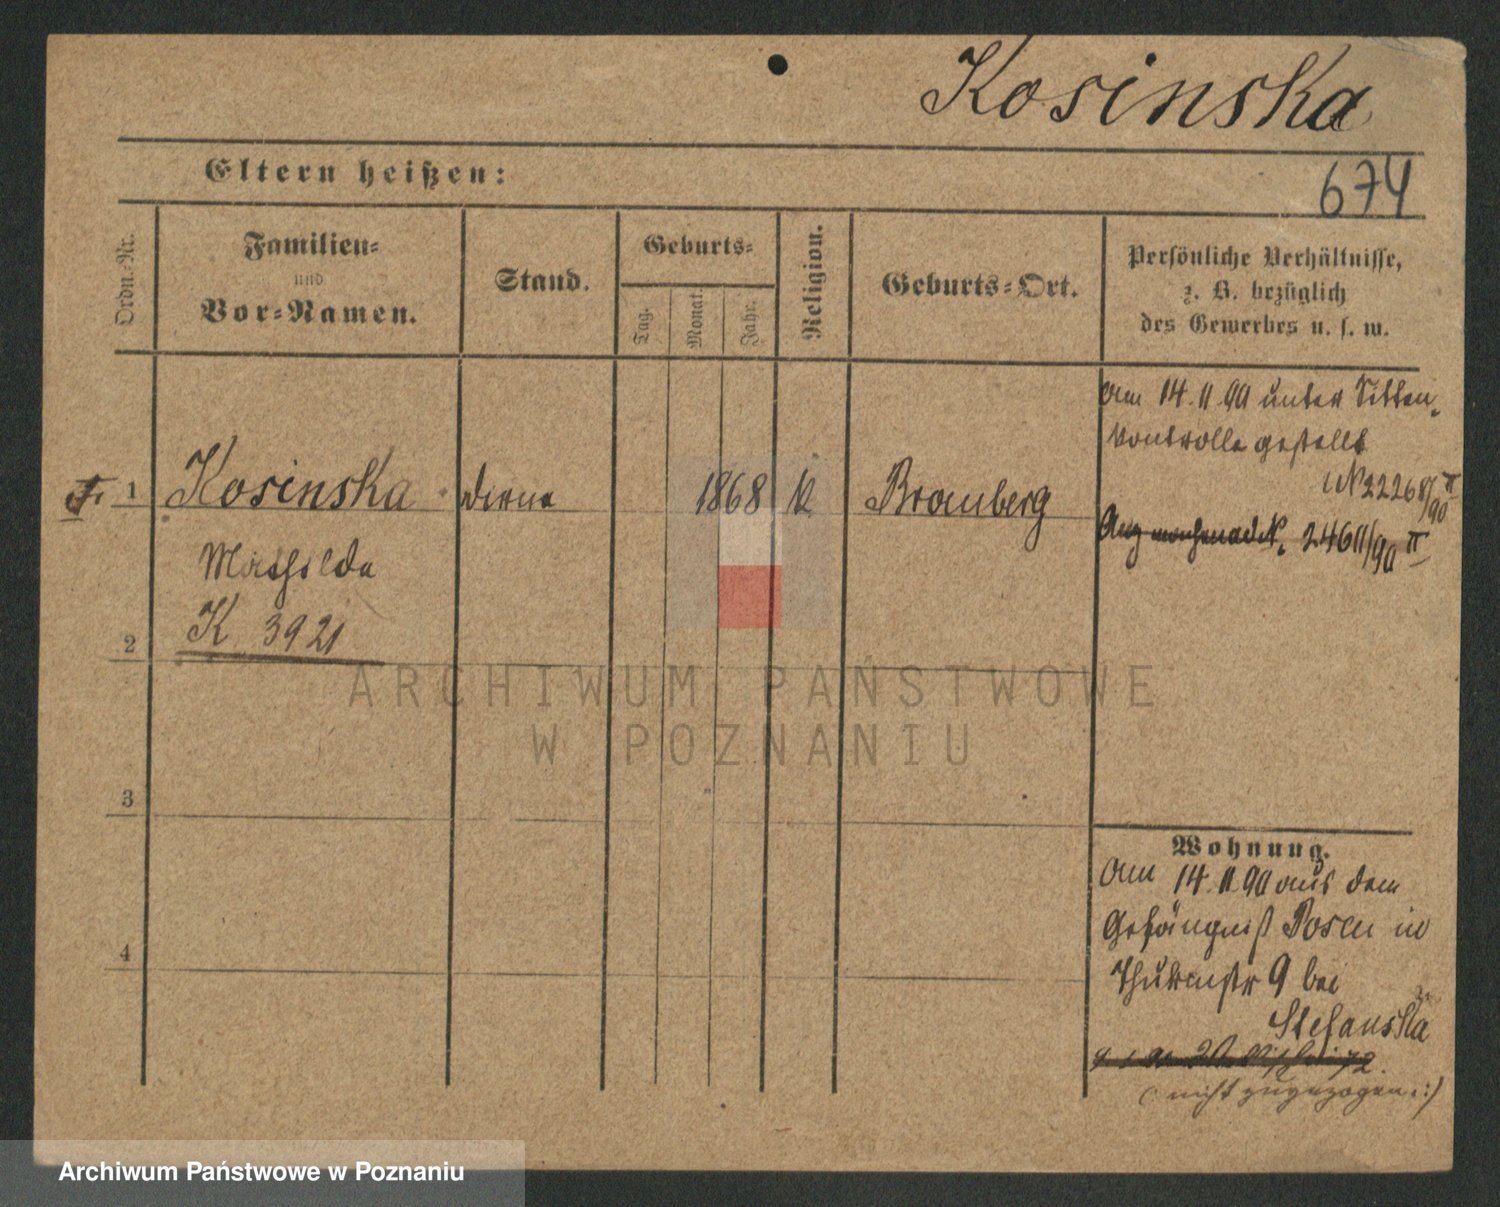 Kosinska
Eltern heißen:
674
Ordn.-Nr.
Familien-
und
Vor-Namen.
Stand.
Geburts-
Tag.
Monat.
Jahr.
Religion.
Geburts-Ort.
Persönliche Verhältnisse,
z. B. bezüglich
des Gewerbes u. s. w.
am 14.11.90 unter Sitten-
kontrolle gestellt
1 Kosinska Dirne 1868 K Bromberg
No 22268/90 II
2461/90 II
Mathilde
K 3921
2
ARCHIWUM PAŃSTWOWE
W POZNANIU
3
Wohnung.
Am 14.11.90 aus dem
Gefängniß Posen in
4
Thurmstr 9 bei
Stefanska
72.
(nicht zugezogen:)
Archiwum Państwowe w Poznaniu